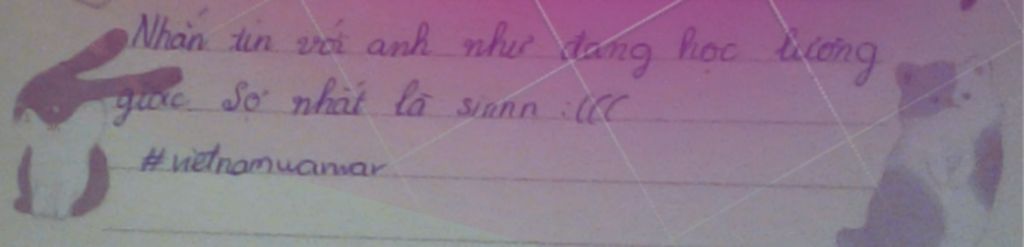 Nhắn tin với anh như đang học lượng
giác. Sợ nhất là sinnn :(((
#vietnamwanwar